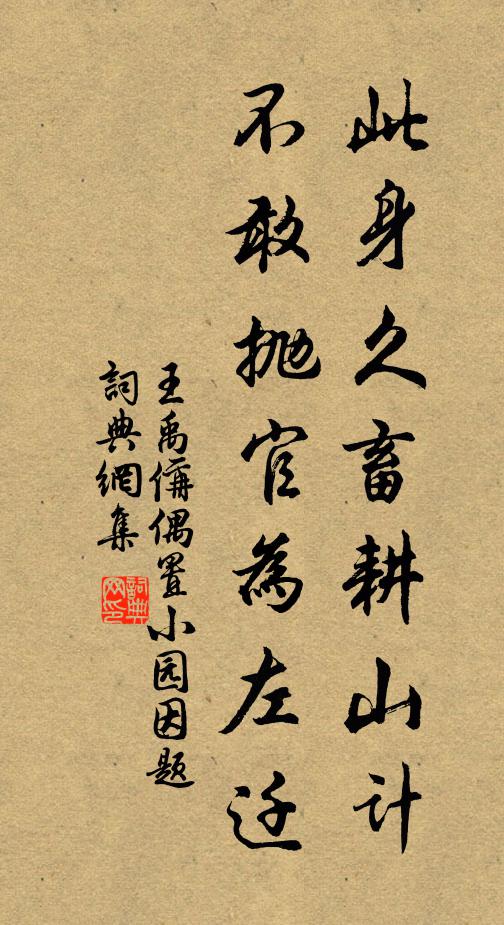 此身久畜耕山计
不敢抛官為左迁
王禹偁偶置小园因题
詞典網集
詞典网印